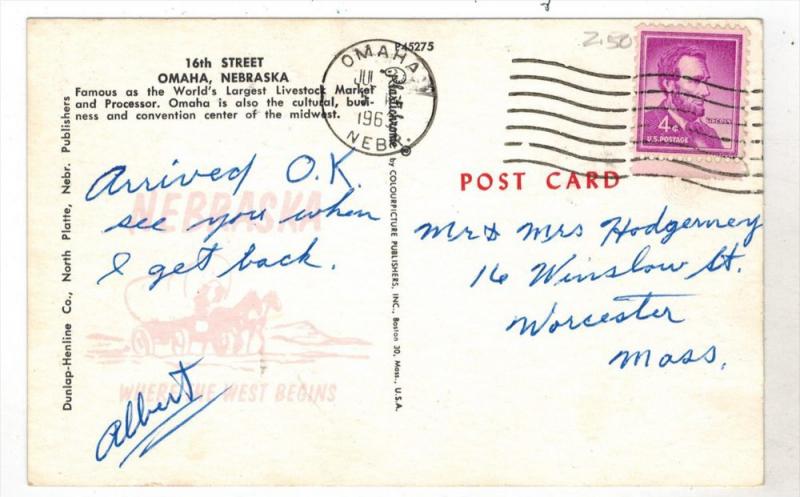 16th STREET
OMAHA, NEBRASKA
Famous as the World's Largest Livestock Market
and Processor. Omaha is also the cultural, busi-
ness and convention center of the midwest.
Dunlap-Henline Co., North Platte, Nebr. Publishers
P45275
Plastichrome ® by COLOURPICTURE PUBLISHERS, INC., Boston 30, Mass., U.S.A.
OMAHA
JUL
1963
NEBR.
2.50
LINCOLN
4¢
U.S. POSTAGE
POST CARD
Arrived O.K.
see you when
I get back.
Albert
NEBRASKA
WHERE THE WEST BEGINS
Mr & Mrs Hodgerney
16 Winslow St.
Worcester
Mass.